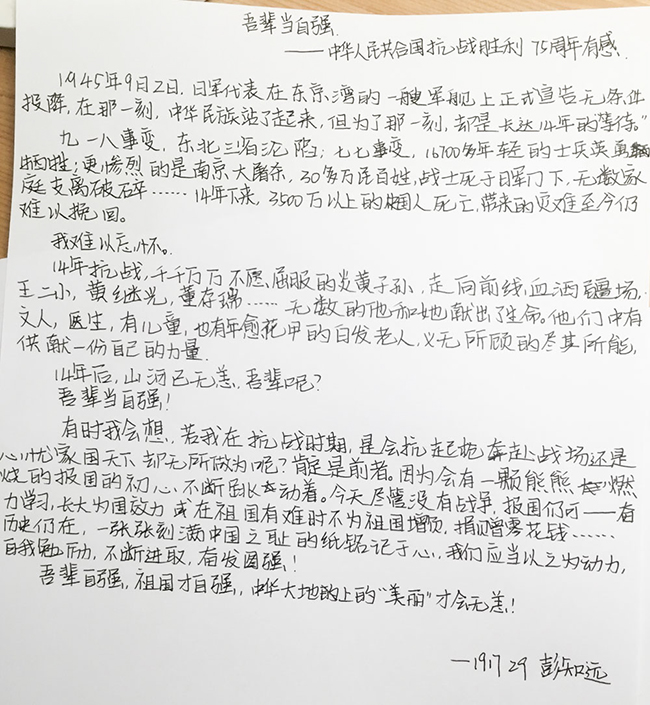 吾辈当自强
——中华人民共合国抗战胜利75周年有感
1945年9月2日,日军代表在东京湾的一艘军舰上正式宣告无条件
投降,在那一刻,中华民族站了起来,但为了那一刻,却是长达14年的等待。"
九一八事变,东北三省沦陷;七七事变,16700多年轻的士兵英勇
牺牲;更惨烈的是南京大屠杀,30多万民百姓,战士死于日军门下,无数家
庭支离破碎……14年下来,3500万以上的中国人死亡,带来的灾难至今仍
难以挽回。
我难以忘怀。
14年抗战,千千万万不愿屈服的炎黄子孙,走向前线,血洒疆场,
王二小,黄继光,董存瑞……无数的他和她献出了生命。他们中有
文人,医生,有儿童,也有年愈花甲的白发老人,义无所顾的尽其所能,
供献一份自己的力量.
14年后,山河已无恙,吾辈呢?
吾辈当自强!
有时我会想,若我在抗战时期,是会抗起枪奔赴战场还是
心忧家国天下却无所做为呢?肯定是前者。因为会有一颗熊熊燃
烧的报国的初心,不断跳动着。今天尽管没有战争,报国仍可——有
力学习,长大为国效力或在祖国有难时不为祖国增烦,捐赠零花钱……
历史仍在,一张张刻满中国之耻的纸铭记于心,我们应当以之为动力,
自我勉励,不断进取,奋发图强!
吾辈自强,祖国才自强,中华大地的上的"美丽"才会无恙!
—1917 29 彭知远